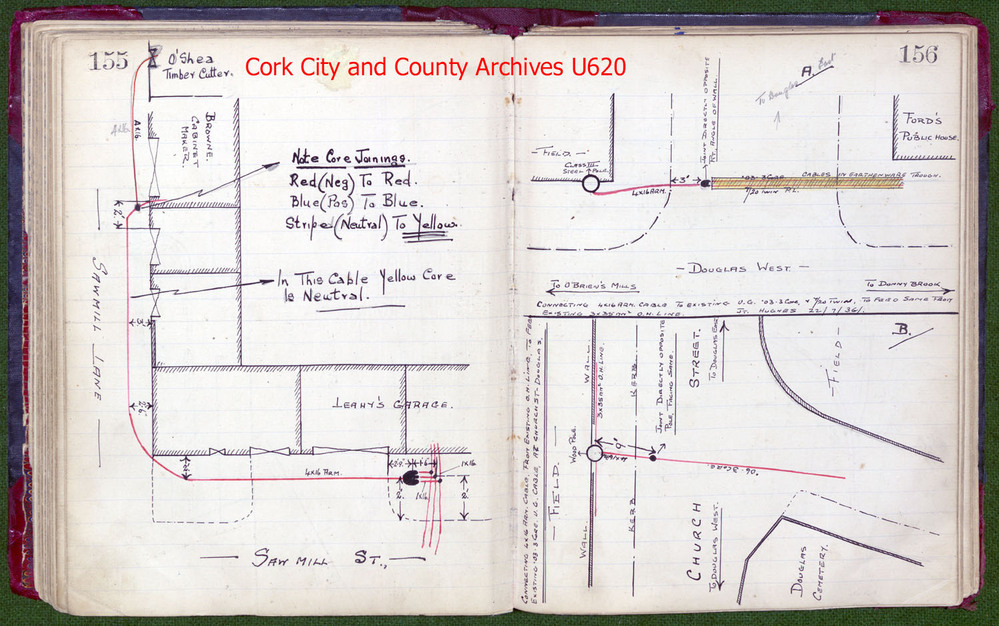 Cork City and County Archives U620
155
O'Shea
Timber Cutter.
4x16
4x16
Browne.
Cabinet
Maker.
Note Core Joinings.
Red (Neg) To Red.
Blue (Pos) To Blue.
Stripe (Neutral) To Yellow.
2'
In This Cable Yellow Core
Is Neutral.
Sawmill Lane
3'
2'6"
Leahy's Garage.
4x16 Arm.
2'9"
1'6"
1x16
1x16
2'
2'
2'
Saw Mill St.,
156
A.
To Douglas East
Joint Directly Opposite
Rt. Angle of Wall.
Ford's
Public House.
Field.
Class III
Steel Pole.
4x16 Arm.
3'
.03.3 Core
Cables in Earthenware Trough.
7/20 Twin P.L.
Douglas West.
To O'Briens Mills
To Donny Brook
Connecting 4x16 Arm. Cable To Existing U.G. .03.3 Core, & 7/20 Twin, To Feed Same From
Existing 3x35mm² O.H. Line.
Jt. Hughes 22/7/36/.
B.
Connecting 4x16 Arm. Cable, From Existing O.H. Line, To Feed
Existing .03.3 Core U.G. Cable, At Church St. Douglas.
Field.
Wall.
Wall.
3x35mm² O.H. Line.
Wood Pole.
Kerb
Kerb
Joint Directly Opposite
Pole, Facing Same.
9'
.06.3 Core.
Street.
Church
To Douglas East
To Douglas West.
Field
Douglas
Cemetery.